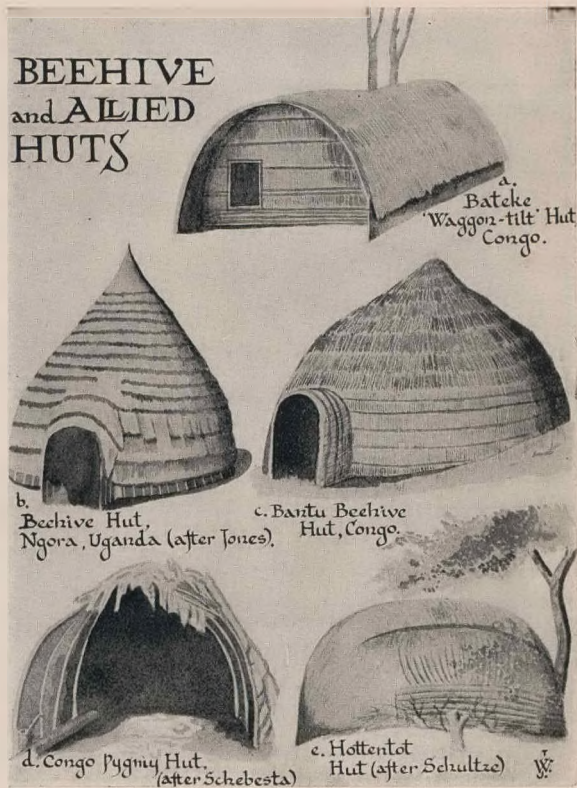 BEEHIVE
and ALLIED
HUTS
a.
Bateke
'Waggon-tilt' Hut
Congo.
b.
Beehive Hut,
Ngora, Uganda (after Jones).
c. Bantu Beehive
Hut, Congo.
d. Congo Pygmy Hut.
(after Schebesta)
e. Hottentot
Hut (after Schultze)